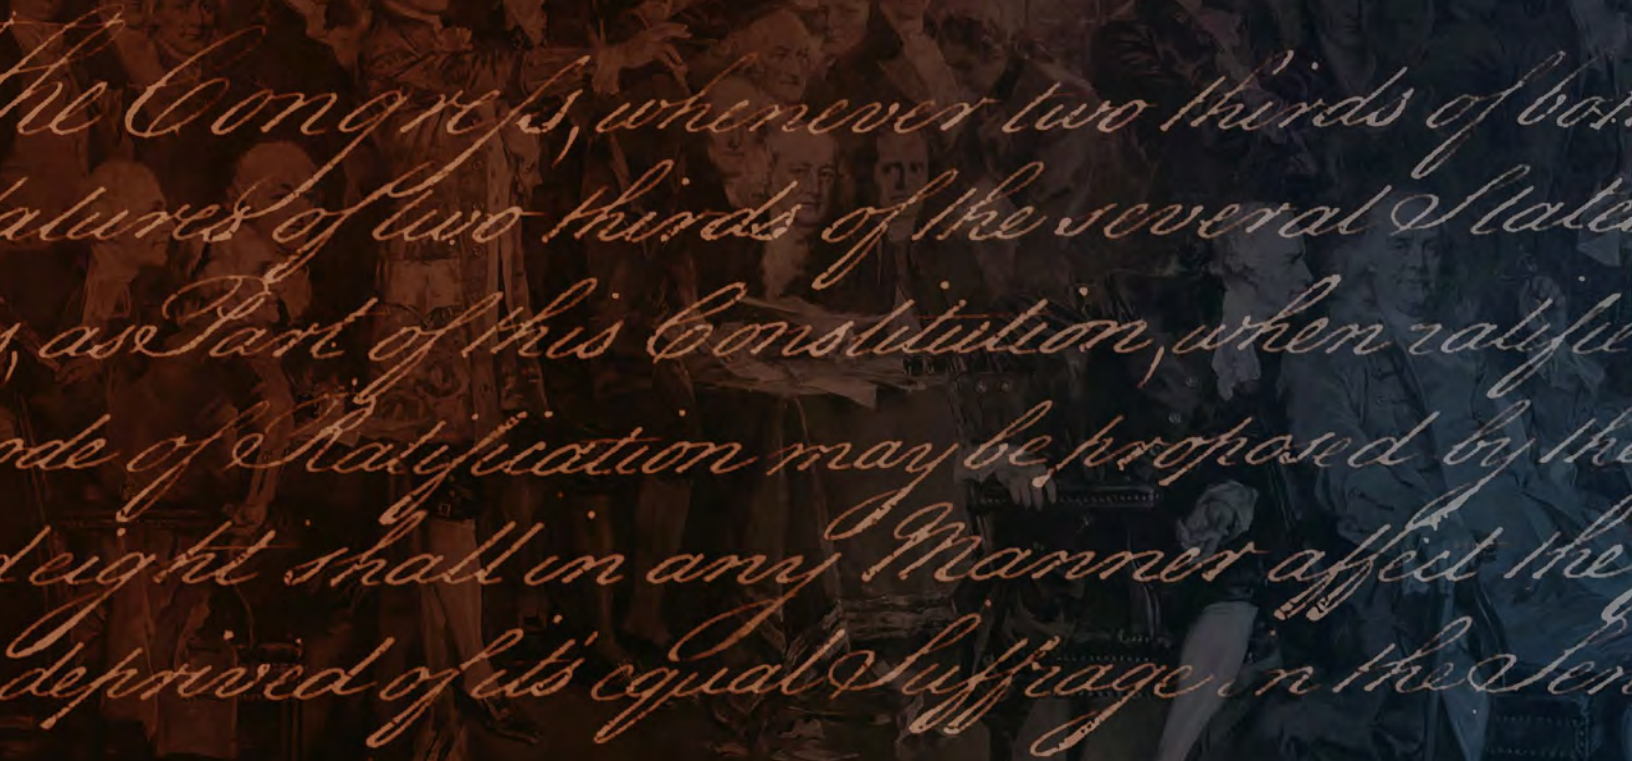 he Congress, whenever two thirds of bot
latures of two thirds of the several State
s, as Part of this Constitution, when ratifie
ode of Ratification may be proposed by the
d eight shall in any Manner affect the
deprived of its equal Suffrage in the Sen